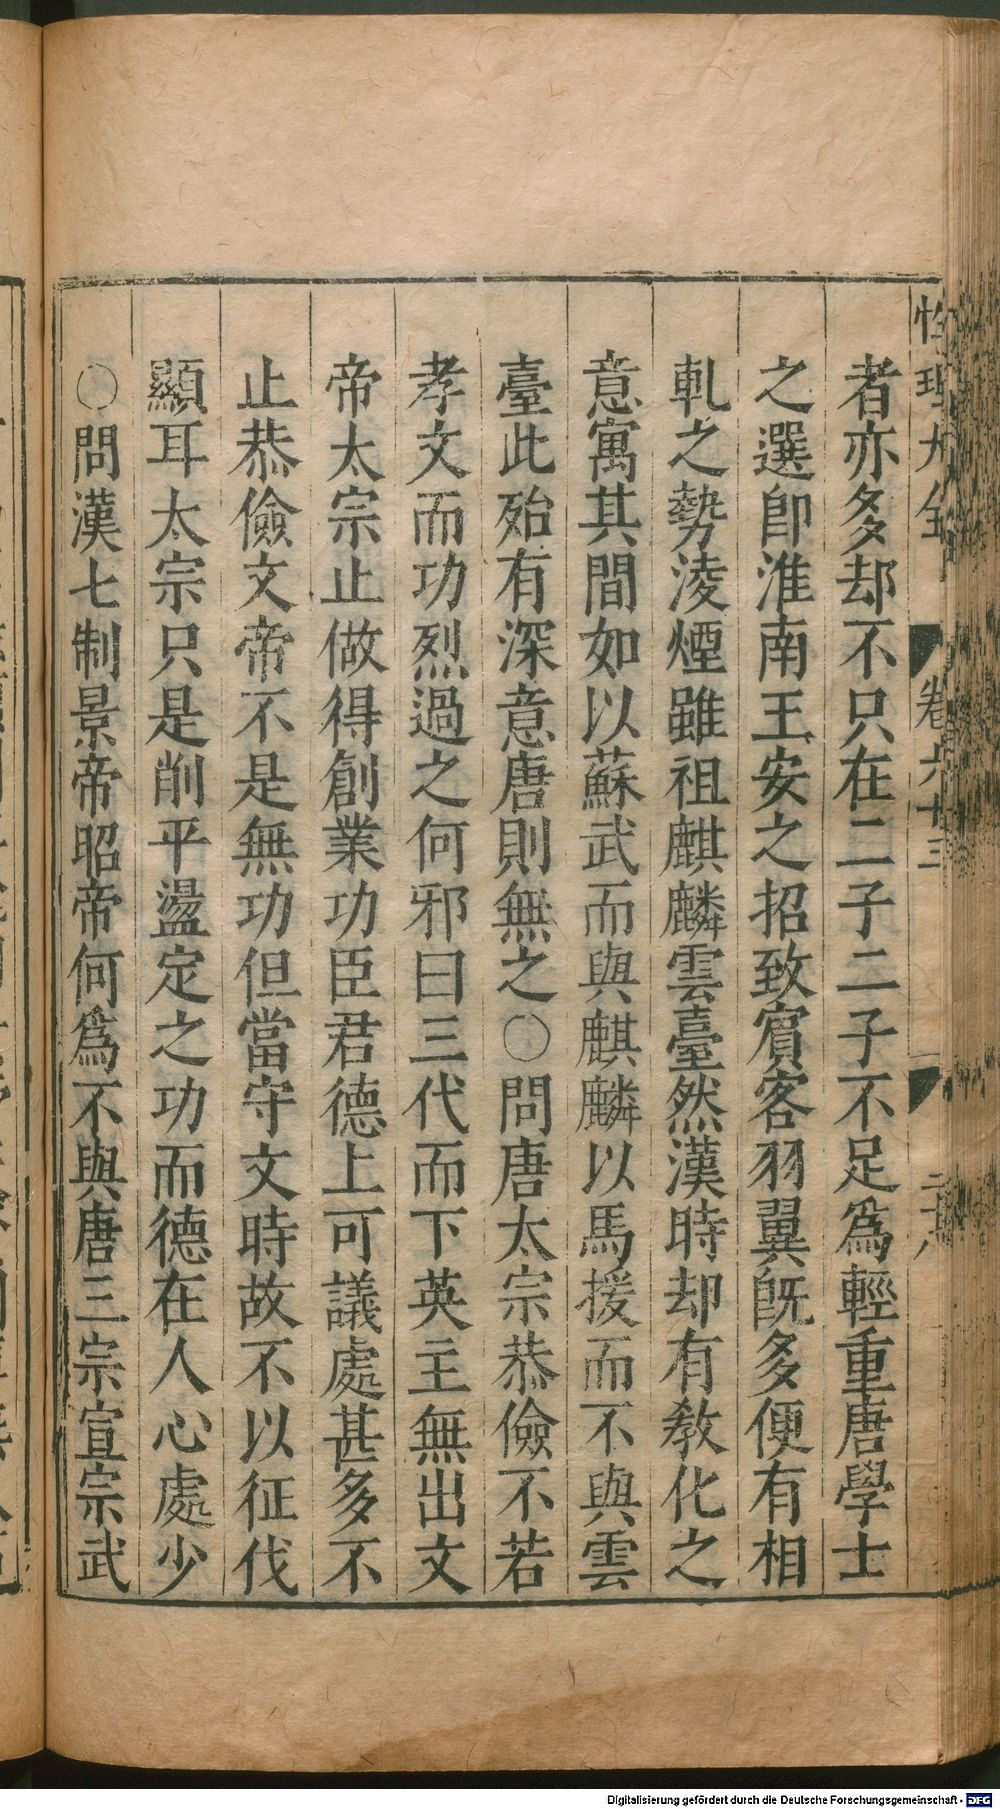 性理大全 卷六十三 二十八
者亦多却不只在二子二子不足爲輕重唐學士
之選卽淮南王安之招致賔客羽翼旣多便有相
軋之勢淩煙雖祖麒麟雲臺然漢時却有敎化之
意寓其間如以蘇武而與麒麟以馬援而不與雲
臺此殆有深意唐則無之〇問唐太宗恭儉不若
孝文而功烈過之何邪曰三代而下英主無出文
帝太宗止做得創業功臣君德上可議處甚多不
止恭儉文帝不是無功但當守文時故不以征伐
顯耳太宗只是削平盪定之功而德在人心處少
〇問漢七制景帝昭帝何爲不與唐三宗宣宗武
Digitalisierung gefördert durch die Deutsche Forschungsgemeinschaft - DFG